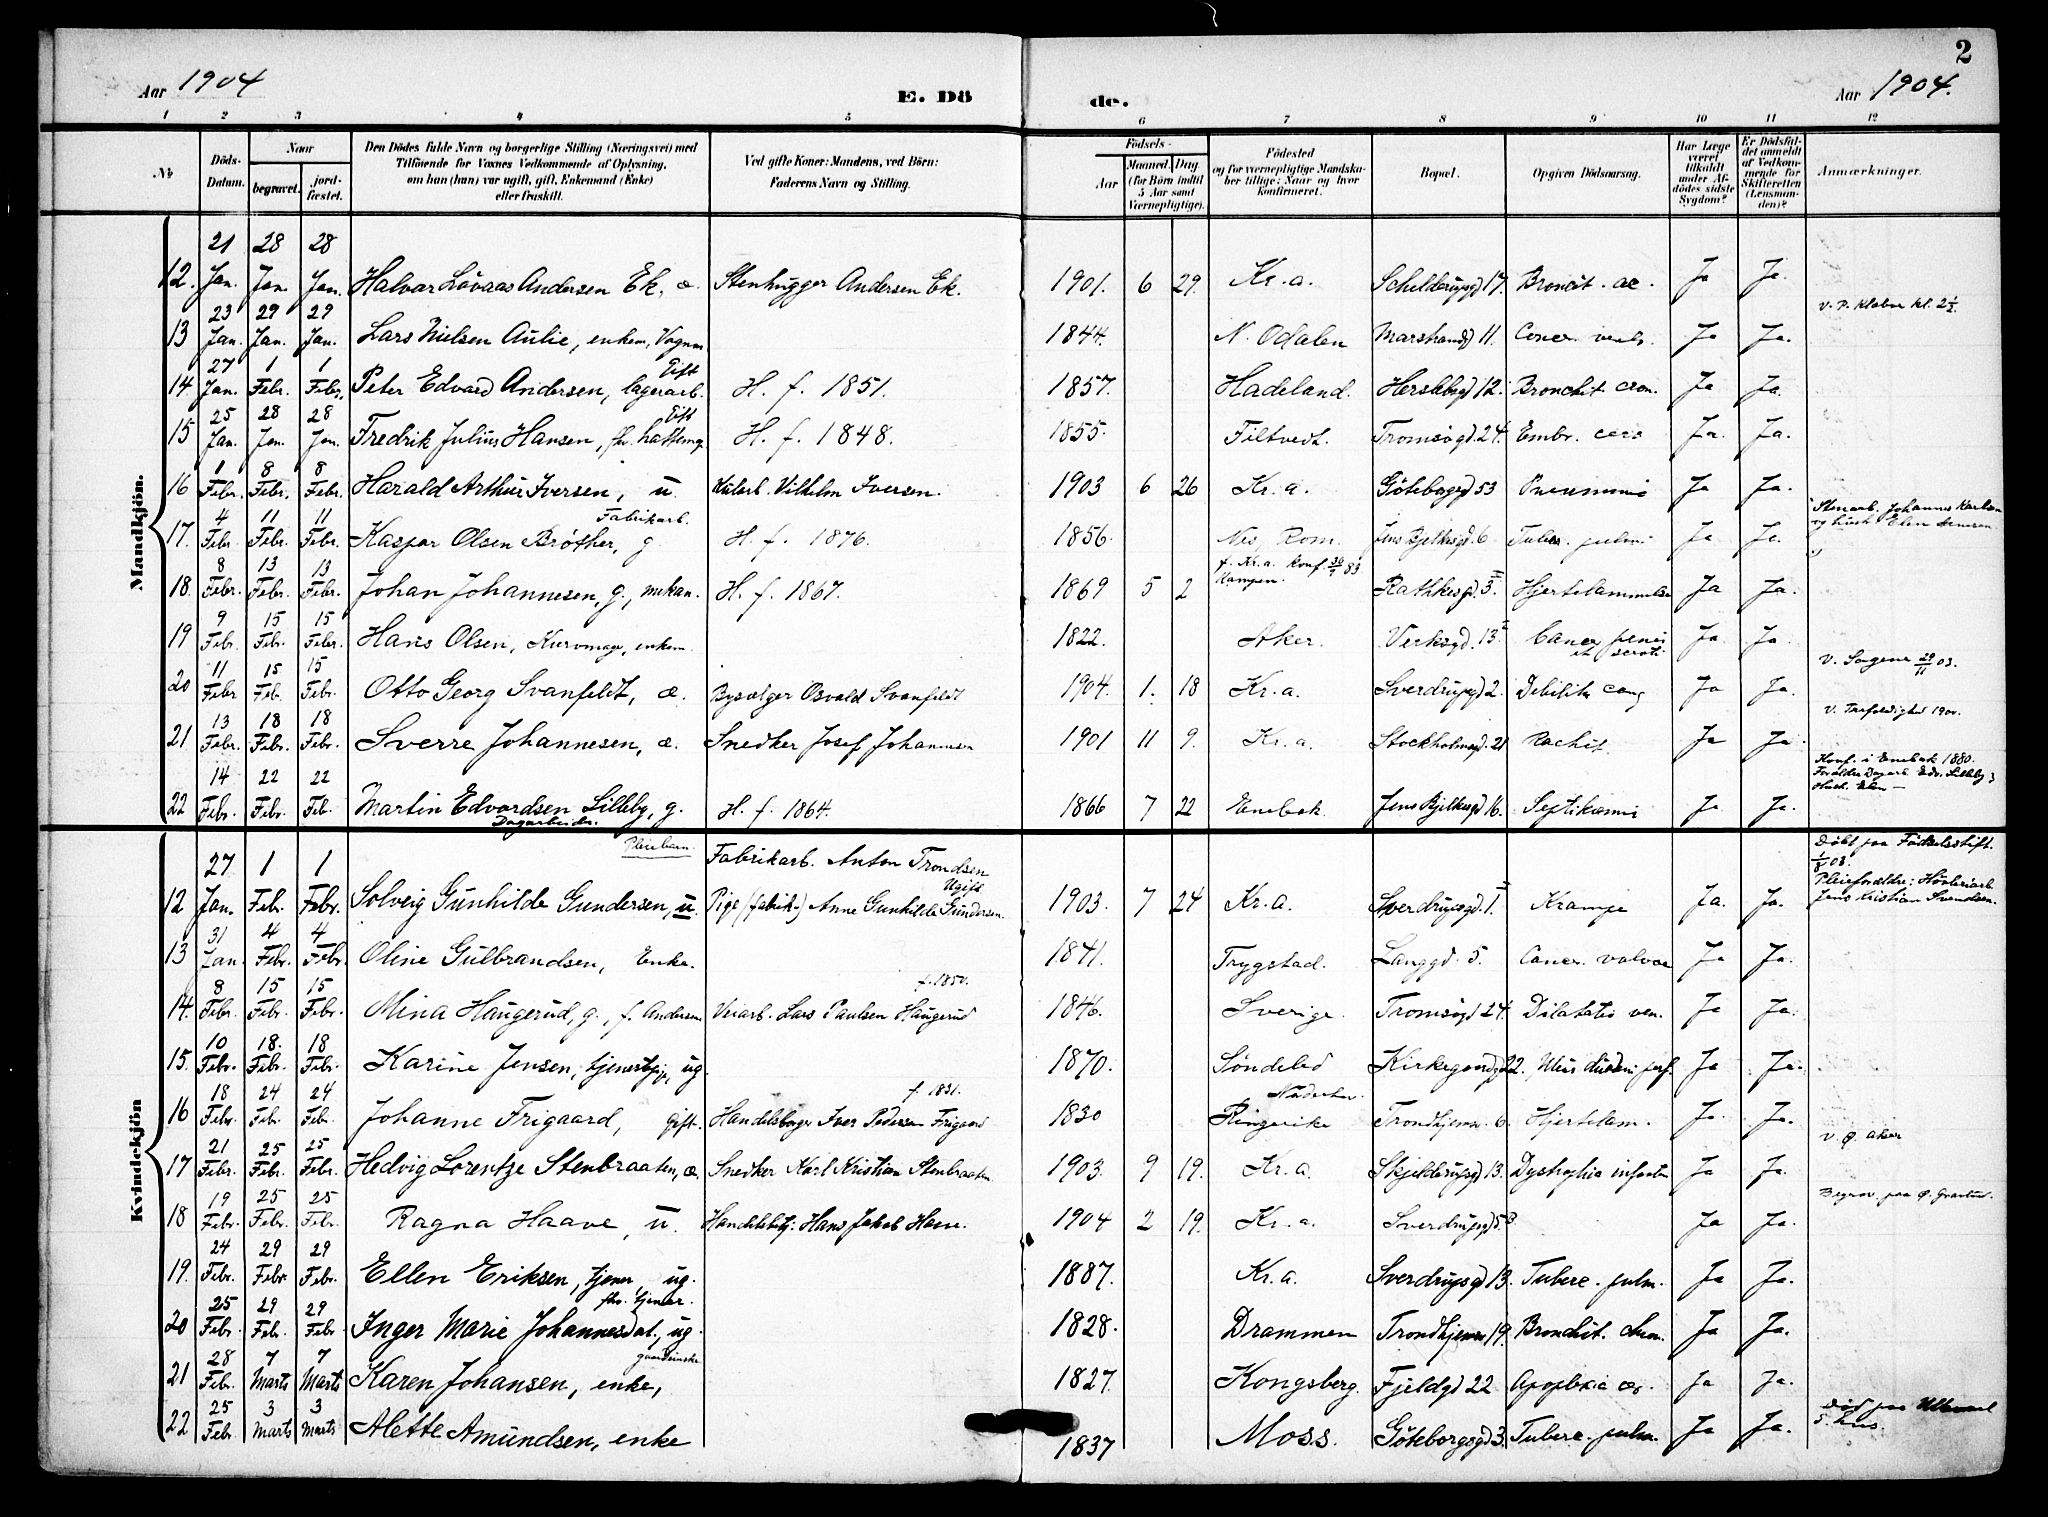 2
Aar 1904
E. Dö
de.
Aar 1904.
1 2 3 4 5 6 7 8 9 10 11 12
№ Döds-Datum. Naar begravet. jord-fæstet. Den Dödes fulde Navn og borgerlige Stilling (Næringsvei) med Tilföiende for Voxnes Vedkommende af Oplysning, om han (hun) var ugift, gift, Enkemand (Enke) eller fraskilt. Ved gifte Koner: Mandens, ved Börn: Faderens Navn og Stilling. Födsels- Aar Maaned Dag (for Börn indtil 5 Aar samt Værnepligtige). Födested og for værnepligtige Mandska-ber tillige: Naar og hvor konfirmeret. Bopæl. Opgiven Dödsaarsag. Har Læge været tilkaldt under Af-dödes sidste Sygdom? Er Dödsfal-det anmeldt af Vedkom-mende for Skifteretten (Lensman-den)? Anmærkninger.
Mandkjön.
12. 21 Jan. 28 Jan. 28 Jan. Halvar Lövaas Andersen Ek, æ. Stenhugger Andersen Ek. 1901. 6 29. Kr.a. Schelderupsgd 17. Bronchit. ac. Ja Ja.
13 23 Jan. 29 Jan. 29 Jan. Lars Nielsen Aulie, enkem, Vognm. 1844. N. Odalen Marstrandgd 11. Cancer ventr. Ja Ja. v. P. Klabve kl. 2½.
14 27 Jan. 1 Febr. 1 Febr. Peter Edvard Andersen, lagerarb. Gift H. f. 1851. 1857. Hadeland. Herslebsgd 12. Bronchit cron. Ja Ja.
15 25 Jan. 28 Jan. 28 Jan. Fredrik Julius Hansen, fhv. hattemg. Gift H. f. 1848. 1855. Filtvedt. Tromsögd. 24. Embr. cere Ja. Ja.
16 1 Febr. 8 Febr. 8 Febr. Harald Arthur Iversen, u. Kularb. Vilhelm Iversen. 1903 6 26 Kr.a. Göteborggd 53 Pneumoni Ja Ja.
17. 4 Febr. 11 Febr. 11 Febr. Kaspar Olsen Bröther, g. Fabrikarb. H. f. 1876. 1856. Nes Rom. Jens Bjelkesgd. 6 Tuber. pulm. Ja Ja. Stenarb. Johannes Karlsen og hust. Elen
18. 8 Febr. 13 Febr. 13 Febr. Johan Johannesen, g., mekan. H. f. 1867. 1869 5 2 f. Kr.a. konf. 30/9 83. Kampen. Rathkesgd. 3 II Hjertelammelse Ja Ja.
19 9 Febr. 15 Febr. 15 Febr. Hans Olsen, Kurvmager, enkem. 1822. Aker. Verksgd. 13 I Cancer penis et scroti Ja. Ja
20 11 Febr 15 Feb. 15 Febr. Otto Georg Svanfeldt, æ. Bysælger Osvald Svanfeldt 1904. 1. 18 Kr.a. Sverdrupsgd 2. Debilitas cong Ja Ja. v. Sagene 29/11 03.
21 13 Febr. 18 Febr. 18 Febr. Sverre Johannesen, æ. Snedker Josef Johannesen 1901 11 9. Kr.a. Stockholmsgd. 21 Rachit. Ja Ja. v. Trefoldighed 1900.
22 14 Febr. 22 Febr. 22 Feb. Martin Edvardsen Lilleby, g. Dagarbeider. H. f. 1864. 1866 7 22 Enebak. Jens Bjelkesgd 16. Septikæmi Ja Ja. Konf. i Enebak 1880. Forældre Dagarb. Edv. Lilleby & Hust. Elen
Kvindekjön
12 27 Jan. 1 Feb. 1 Febr. Pleiebarn Solveig Gunhilde Gundersen, u. Fabrikarb. Anton Trondsen Ugift Pige (fabrik.) Anne Gunhilde Gundersen. 1903. 7 24 Kr.a. Sverdrupsgd. 1. II Krampe Ja. Ja. Döbt paa Födselsstift. 1/8 03. Pleieforældre: Jens Kristian Svendsen.
13 31 Jan. 4 Febr. 4 Febr. Oline Gulbrandsen, Enke. 1841. Trygstad. Langgd. 5. Cancer. valvae Ja Ja.
14. 8 Febr. 15 Febr. 15 Febr. Mina Haugerud, g., f. Andersen Veiarb. Lars Paulsen Haugerud f. 1850. 1846. Sverige. Tromsögd 24. Dilatatio ven. Ja Ja.
15. 10 Febr. 18. Febr. 18 Febr. Karine Jensen, tjenestpige, ug. 1870. Söndeled Kirkegaardgd 22. Ulcus duodeni perf. Ja Ja.
16 18 Febr. 24 Feb. 24 Feb. Johanne Frigaard, gift. Handelsborger Iver Pedersen Frigaard f 1831. 1830 Ringerike Trondhjemsv. 6. Hjertelam. Ja. Ja.
17 21 Febr. 25 Febr. 25 Febr. Hedvig Lorentze Stenbraaten, æ. Snedker Karl Kristian Stenbraaten. 1903. 9 19. Kr.a. Skjelderupsgd 13. Dystrophia infantu Ja Ja. v. Ø. Aker
18 19 Febr. 25 Febr. 25 Febr. Ragna Haave, u. Handelsbtj: Hans Jakob Haave. 1904 2 19. Kr.a. Sverdrupsgd 5. Ja Ja. Begrav. paa Ø. Gravlund.
19. 24 Febr. 29 Febr. 29 Febr. Ellen Eriksen, tjener, ug. 1887. Kr.a. Sverdrupsgd 13. Tuberc. pulm. Ja Ja.
20 25 Febr. 29 Febr. 29 Febr Inger Marie Johannesdat., ug. fhv. tjener. 1828. Drammen Trondhjemsv 19. Bronchit. chron. Ja Ja.
21 28 Feb. 7 Marts 7 Marts Karen Johansen, enke, gaardeierske 1827. Kongsberg. Fjeldgd 22 Apoplexia Ja Ja.
22 25 Febr. 3 Marts 3 Marts Alette Amundsen, enke 1837 Moss. Göteborgsgd 3. Tuberc. pulm. Ja Ja. Död paa Ullevaal S. hus.